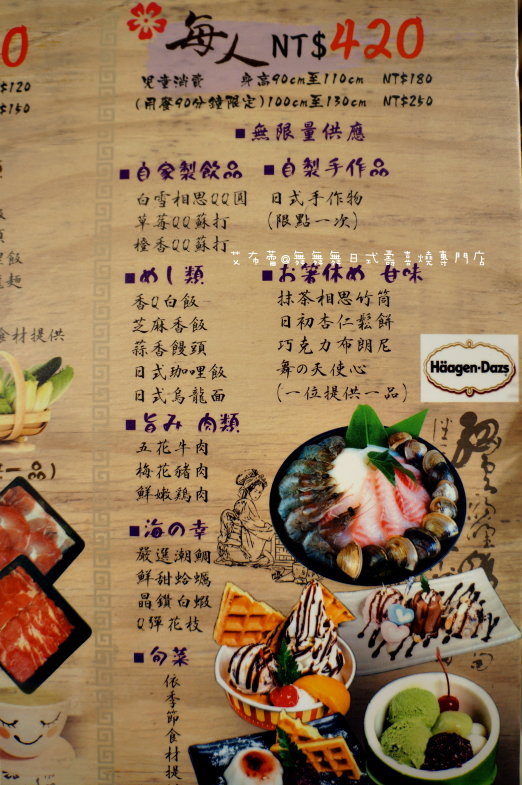 每人 NT$420
兒童消費 身高90cm至110cm NT$180
(用餐90分鐘限定)100cm至130cm NT$250
0
$120
$150
■無限量供應
■自家製飲品
白雪相思QQ圓
草莓QQ蘇打
橙香QQ蘇打
■自製手作品
日式手作物
(限點一次)
艾布蕾@舞舞舞日式壽喜燒專門店
■めし類
香Q白飯
芝麻香飯
蒜香饅頭
日式咖哩飯
日式烏龍面
■お箸休め 甘味
抹茶相思竹筒
日初杏仁鬆餅
巧克力布朗尼
舞の天使心
(一位提供一品)
Häagen-Dazs
食材提供
■旨み 肉類
五花牛肉
梅花豬肉
鮮嫩鷄肉
一品)
■海の幸
嚴選潮鯛
鮮甜蛤蠣
晶鑽白蝦
Q彈花枝
■旬菜
依季節食材提